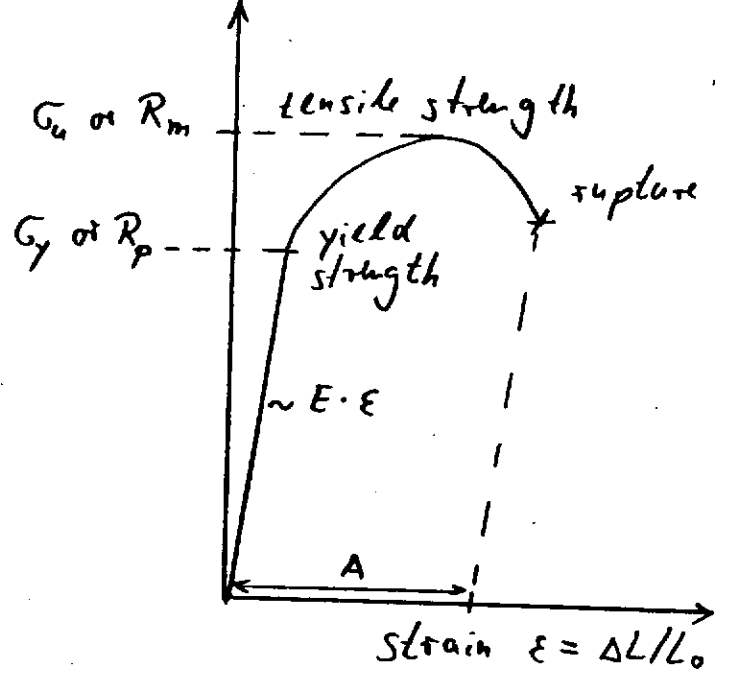 σu or Rm
tensile strength
rupture
σy or Rp
yield
strength
~ E · ε
A
strain ε = ΔL/L₀